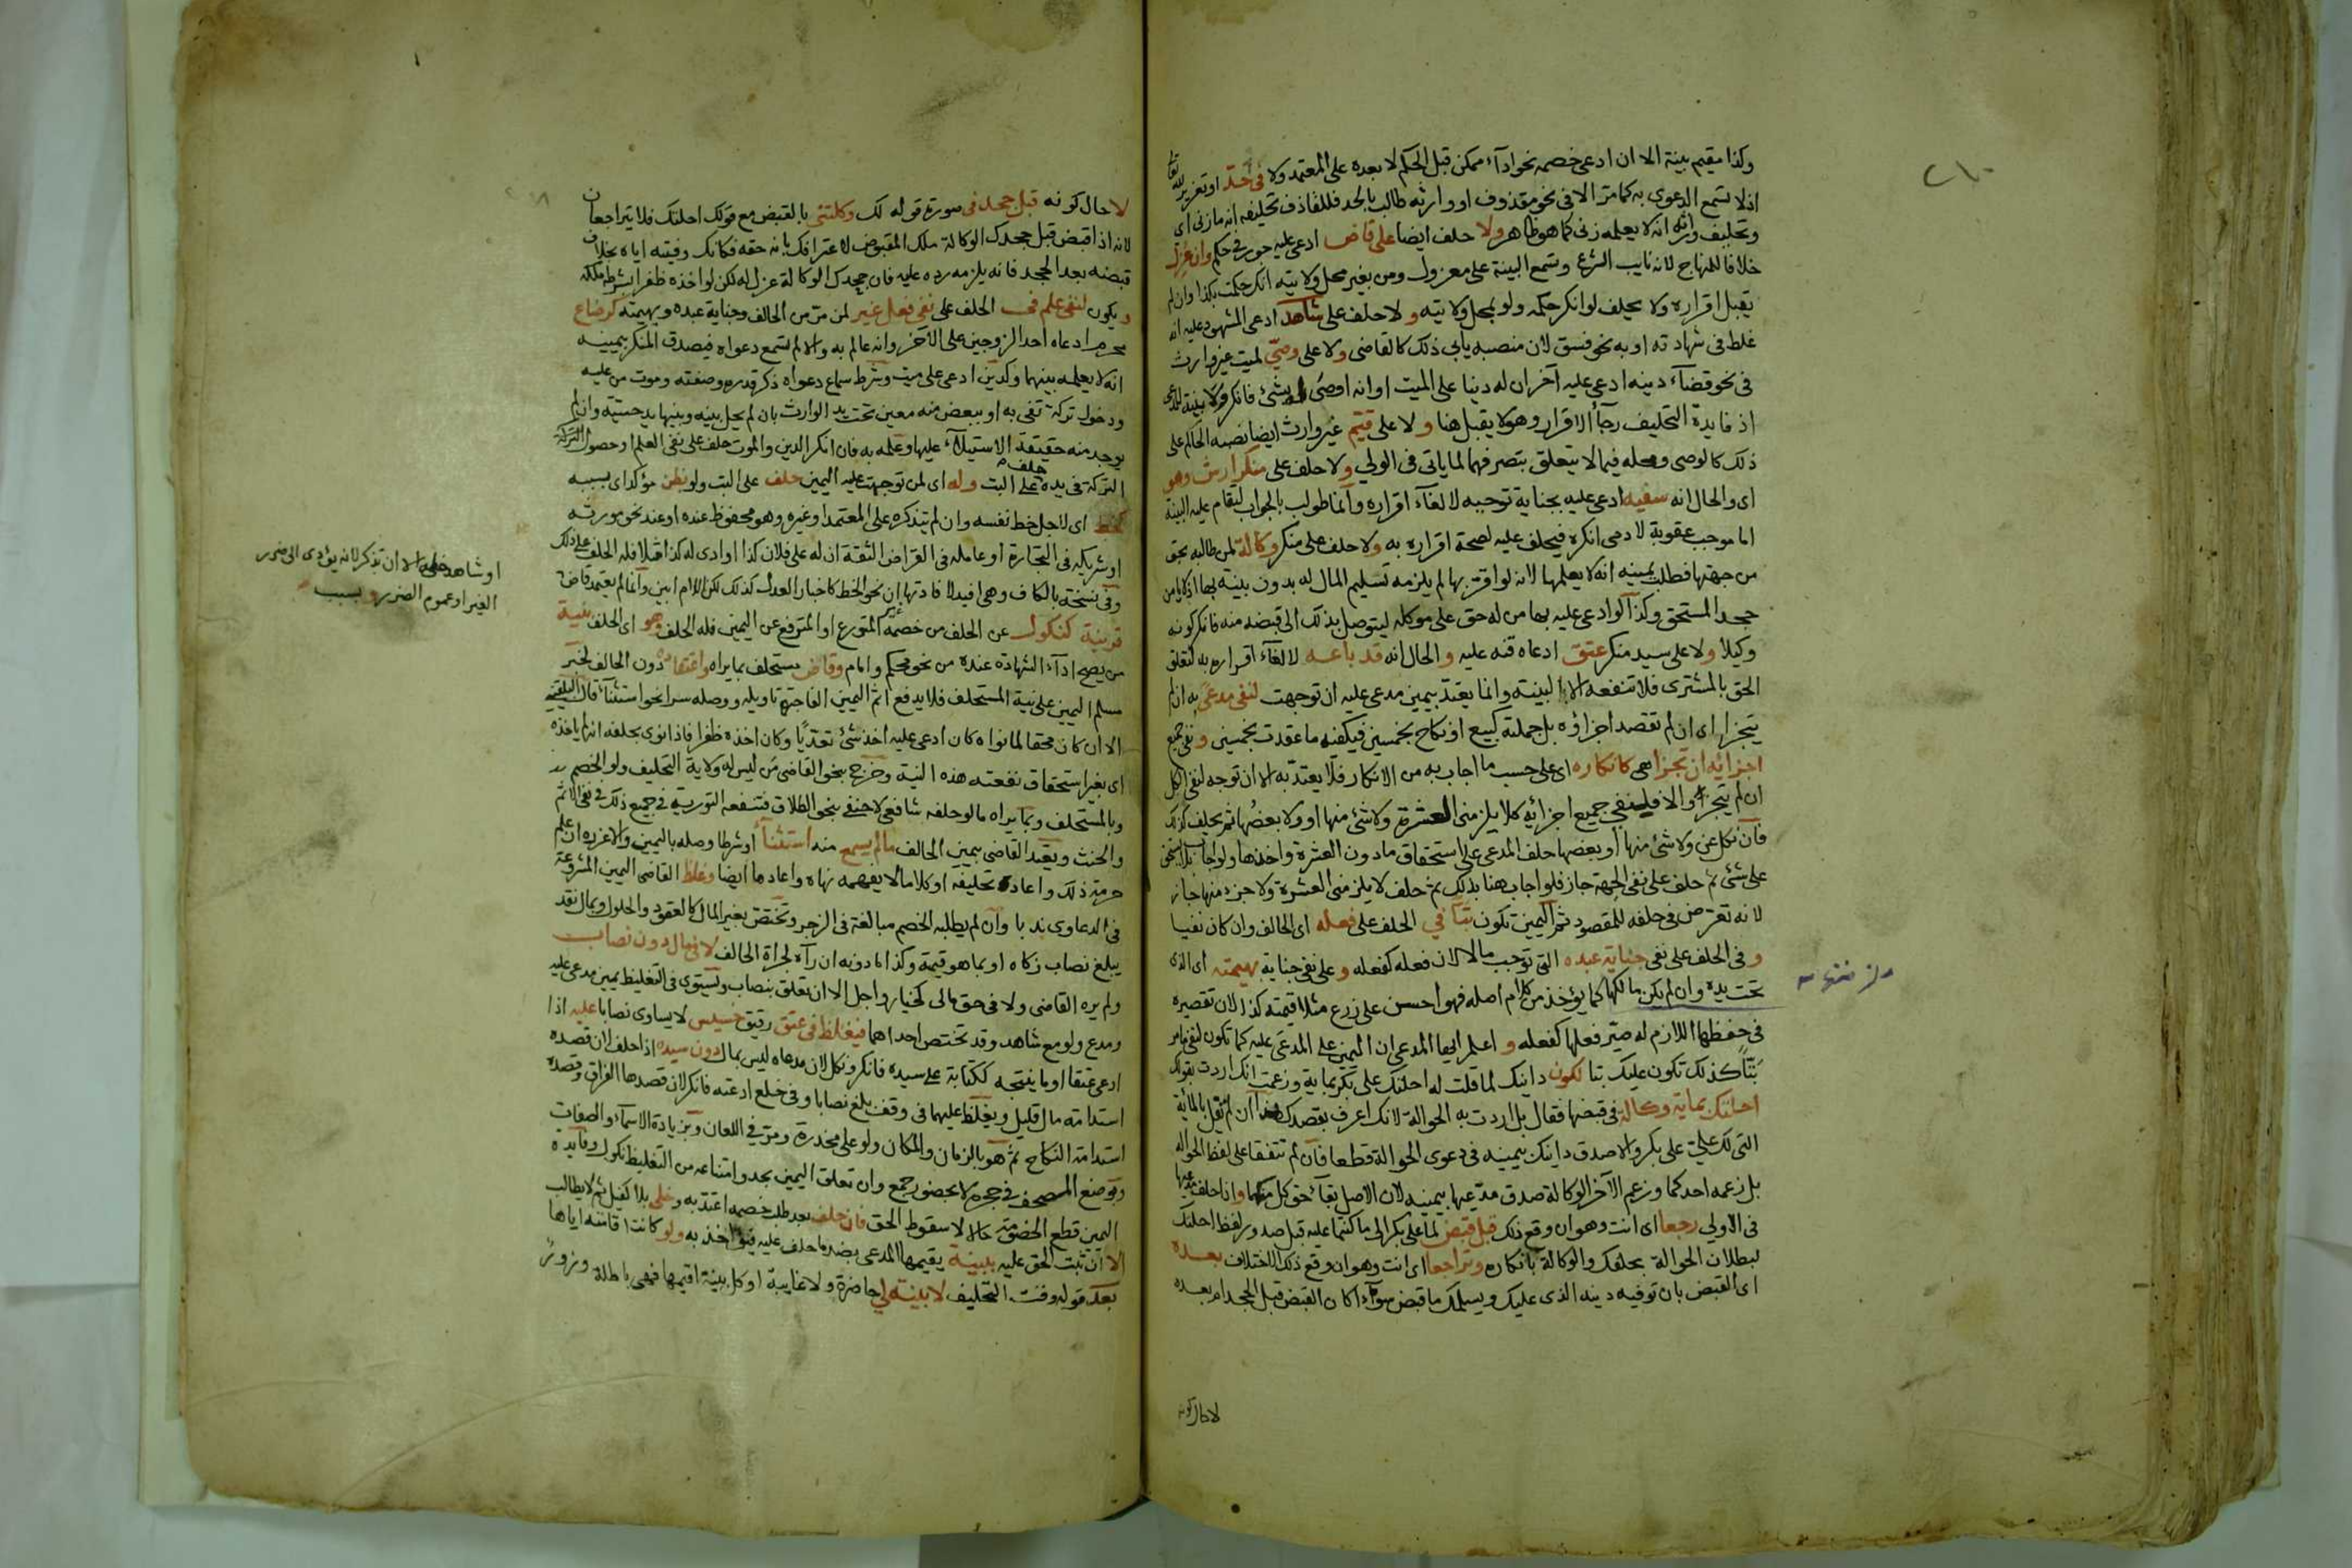 وكذا مقيم بينة الا ان ادعى خصمه نحو ادآء ممكن قبل الحكم لا بعده على المعتمد ولا في حد او تعزير لله تعالى
اذ لا تسمع الدعوى به كما مر الا في نحو مقذوف او وارثه طالب بالحد فللقاذف تحليفه انه ما زنى اى
وتحليف وارثه انه لا يعلمه زنى كما هو ظاهر ولا حلف ايضا على قاض ادعى عليه جور في حكم وان عزل
خلافا للمنهاج لانه نايب الشرع وتسمع البينة على معزول ومن بغير محل ولايته انك حكمت بكذا وان لم
يقبل اقراره ولا يحلف لو انكر حكمه ولو بمحل ولايته ولا حلف على شاهد ادعى المشهود عليه انه
غلط في شهادته او به نحو فسق لان منصبه يأبى ذلك كالقاضى ولا على وصي لميت غير وارث
في نحو قضآء دينه ادعى عليه آخر ان له دينا على الميت او انه اوصى له بشئ فانكر ولا بينة للمدعى
اذ فايدة التحليف رجآء الاقرار وهو لا يقبل هنا ولا على قيم غير وارث ايضا نصبه الحاكم على
ذلك كالوصى ومحله فيما لا يتعلق بتصرفهما لما ياتى فى الولى ولا حلف على منكر ارش وهو
اى والحال انه سفيه ادعى عليه بجناية توجبه لالغآء اقراره وانما طولب بالجواب لتقام عليه البينة
اما موجب عقوبة لادمى انكره فيحلف عليه لصحة اقراره به ولا حلف على منكر وكالة لمن طالبه بحق
من جهتها فطلب يمينه انه لا يعلمها لانه لو اقر بها لم يلزمه تسليم المال له بدون بينة بها اذ لا يامن
جحد المستحق وكذا لو ادعى عليه بها من له حق على موكله ليتوصل بذلك الى قبضه منه فانكر كونه
وكيلا ولا على سيد منكر عتق ادعاه قنه عليه والحال انه قد باعه لالغآء اقراره به لتعلق
الحق بالمشترى فلا تنفعه الا البينة وانما يعتد بيمين مدعى عليه ان توجهت لنفى مدعى به ان لم
يتجزا اى ان لم تقصد اجزاؤه بل جملته كبيع او نكاح بخمسين فيكفيه ما عقدت بخمسين ونفى جميع
اجزائه ان تجزا هى كانكاره اى على حسب ما اجاب به من الانكار فلا يعتد به الا ان توجه لنفى الكل
ان لم يتجزا والا فلينفى جميع اجزائه كلا يلزمنى العشرة ولا شئ منها او ولا بعضها ثم يحلف كذلك
فان نكل عن ولا شئ منها او بعضها حلف المدعى على استحقاق ما دون العشرة واخذها ولو اجاب بلا تستحق
على شئ ثم حلف على نفى الجهة جاز فلو اجاب هنا بذلك ثم حلف لا يلزمنى العشرة ولا جزء منها جاز
لانه تعرض فى حلفه للمقصود ثم اليمين تكون بتا في الحلف على فعله اى الحالف وان كان نفيا
وفى الحلف على نفى جناية عبده التى توجب مالا لان فعله كفعله وعلى نفى جناية بهيمته اى الذى
تحت يده وان لم يكن مالكها كما يؤخذ من كلام اصله فهو احسن على زرع مثلا قيمته كذا لان تقصيره
فى حفظها اللازم له صير فعلها كفعله و اعلم ايها المدعى ان اليمين على المدعى عليه كما تكون لنفى ما مر
بتا كذلك تكون عليك بتا لكون داينك لما قلت له احلتك على بكر بماية وزعمت انك اردت بقولك
احلتك بماية وكالة فى قبضها فقال بل اردت به الحوالة لانك اعرف بقصدك هذا ان لم تقل بالماية
التى لك على على بكر والا صدق داينك بيمينه فى دعوى الحوالة قطعا فان لم تتفقا على لفظ الحوالة
بل زعمه احدكما وزعم الآخر الوكالة صدق مدعيها بيمينه لان الاصل بقآء حق كل منهما واذا حلف مدعيها
فى الاولى رجعا اى انت وهو ان وقع ذلك قبل قبض لما على بكر الى ما كنتما عليه قبل صدور لفظ احلتك
لبطلان الحوالة بحلفك والوكالة بانكاره وتراجعا اى انت وهو ان وقع ذلك الاختلاف بعده
اى القبض بان توفيه دينه الذى عليك ويسلمك ما قبض سوآء اكان القبض قبل الجحد ام بعده
لا حال كونه
لا حال كونه قبل جحد فى صورة قوله لك وكلتنى بالقبض مع قولك احلتك فلا يتراجعان
لانه اذا قبض قبل جحدك الوكالة ملك المقبوض لاعترافك بانه حقه فكانك وفيته اياه بخلاف
قبضه بعد الجحد فانه يلزمه رده عليه فان جحدك الوكالة عزل له لكن لو اخذه ظفرا بشرطه ملكه
ويكون لنفى علم فى الحلف على نفى فعل غير لمن مر من الحالف وجناية عبده وبهيمته كرضاع
محرم ادعاه احد الزوجين على الآخر وانه عالم به والا لم تسمع دعواه فيصدق المنكر بيمينه
انه لا يعلمه بينهما وكدين ادعى على ميت وشرط سماع دعواه ذكر قدره وصفته وموت من عليه
ودخول تركة تفى به او ببعض منه معين تحت يد الوارث بان لم يحل بينه وبينها يد حسية وان لم
يوجد منه حقيقة الاستيلآء عليها وعلمه به فان انكر الدين والموت حلف على نفى العلم او حصول التركة
التركة فى يده حلف على البت وله اى لمن توجهت عليه اليمين حلف على البت ولو بظن مؤكد اى بسببه
كخط اى لاجل خط نفسه وان لم يتذكره على المعتمد او غيره وهو محفوظ عنده او عند نحو مورثه
او شريكه فى التجارة او عامله فى القراض الثقة ان له على فلان كذا او ادى له كذا قبلا فله الحلف على ذلك
وفى نسخة بالكاف وهى افيد لافادتها ان نحو الخط كاخبار العدل كذلك لكن اللام ابين وانما لم يعتمد قاض
قرينة كنكول عن الحلف من خصمه المتورع او المترفع عن اليمين فله الحلف وهو اى الحلف بنية
من يصح ادآء الشهادة عنده من نحو محكم وامام وقاض مستحلف بما يراه واعتقاده دون الحالف لخبر
مسلم اليمين على نية المستحلف فلا يدفع اثم اليمين الفاجرة تاويله ووصله سرا نحو استثنآء قال البلقينى
الا ان كان محقا لما نواه كان ادعى عليه اخذ شئ تعديا وكان اخذه ظفرا فاذا نوى بحلفه انه لم ياخذه
اى بغير استحقاق نفعته هذه النية وخرج بنحو القاضى من ليس له ولاية التحليف ولو الخصم
وبالمستحلف وبما يراه ما لو حلفه شافعى لا حنفى بنحو الطلاق فتنفعه التورية فى جميع ذلك فى نفى الاثم
والحنث ويقيد القاضى يمين الحالف ما لم يسمع منه استثنآء او شرطا وصله باليمين والا عزره ان علم
حرمة ذلك واعاد تحليفه او كلاما لا يفهمه نهاه واعادها ايضا وغلظ القاضى اليمين المشروعة
فى الدعاوى ندبا وان لم يطلبه الخصم مبالغة فى الزجر وتختص بغير المال كالعقود والحلول وبمال نقد
يبلغ نصاب زكاه او بما هو قيمة وكذا ما دونه ان رآه لجراة الحالف لا فى مال دون نصاب
ولم يره القاضى ولا فى حق مالى كخيار واجل الا ان تعلق بنصاب وتستوى فى التغليظ يمين مدعى عليه
ومدع ولو مع شاهد وقد تختص احداهما فيغلظ فى عتق رقيق خسيس لا يساوى نصابا عليه اذا
ادعى عتقا او ما ينتجه ككتابة على سيده فانكر ونكل لان مدعاه ليس بمال دون سيده اذا حلف لان قصده
استدامة مال قليل ويغلظ عليهما فى وقف بلغ نصابا وفى خلع ادعته فانكر لان قصدها الفراق وقصده
استدامة النكاح ثم هو بالزمان والمكان ولو على مخدرة ومر فى اللعان وبزيادة الاسمآء والصفات
ووضع المصحف فى حجره لا بحضور جمع وان تعلق اليمين بحد وامتناعه من التغليظ نكول وفايدة
اليمين قطع الخصومة حالا لا سقوط الحق فان حلف بعد طلب خصمه اعتد به وخلى بلا كفيل ثم لا يطالب
الا ان ثبت الحق عليه ببينة يقيمها المدعى بضد ما حلف عليه فيؤاخذ به ولو كانت اقامته اياها
بعد قوله وقت التحليف لا بينة لي حاضرة ولا غايبة او كل بينة اقيمها فهى باطلة وزور
او شاهد خلى الا ان تذكر لانه يؤدى الى ضرر
الغير او عموم الضرر وبسبب